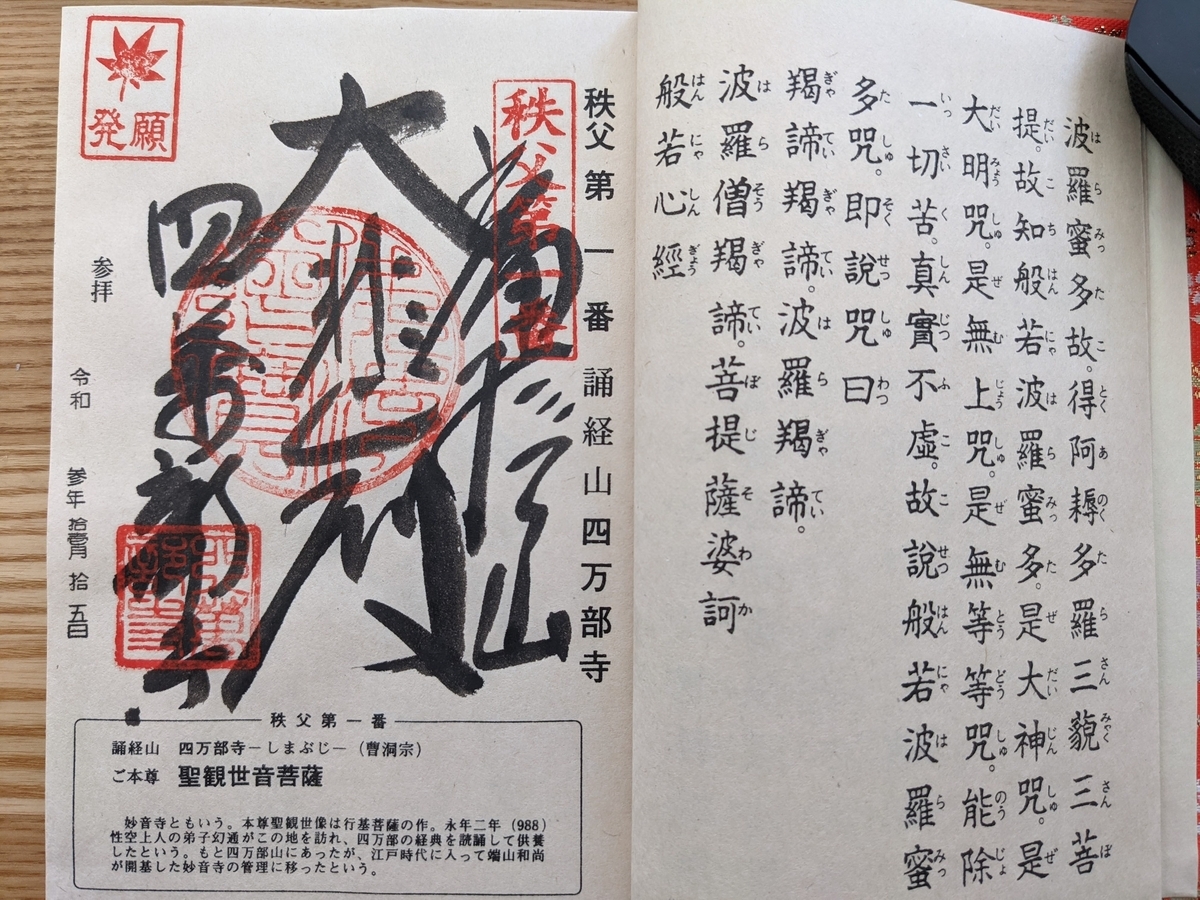 波羅蜜多故。得阿耨多羅三藐三菩
提。故知般若波羅蜜多。是大神咒。是
大明咒。是無上咒。是無等等咒。能除
一切苦。真實不虛。故說般若波羅蜜
多咒。即說咒曰
羯諦羯諦。波羅羯諦。
波羅僧羯諦。菩提薩婆訶
般若心經
秩父第一番誦経山四万部寺
秩父第一番
誦経山
大悲殿
四萬部寺
発願
参拝 令和 参年 拾壹月 拾五日
秩父第一番
誦経山 四万部寺−しまぶじ−(曹洞宗)
ご本尊 聖観世音菩薩
妙音寺ともいう。本尊聖観世像は行基菩薩の作。永年二年(988)
性空上人の弟子幻通がこの地を訪れ、四万部の経典を読誦して供養
したという。もと四万部山にあったが、江戸時代に入って端山和尚
が開基した妙音寺の管理に移ったという。